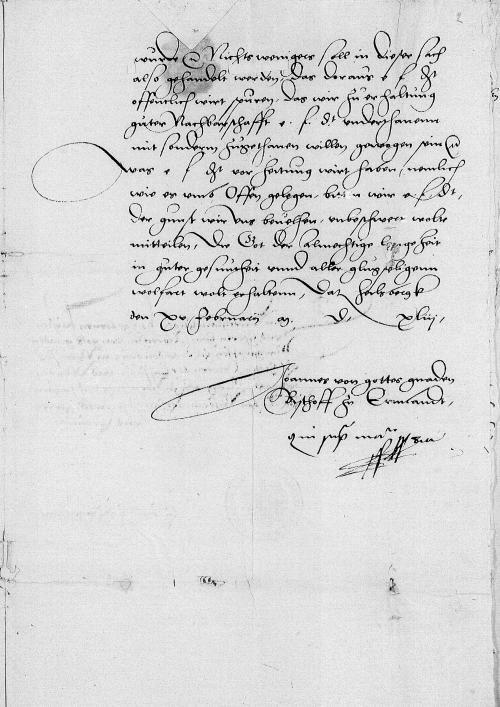 wurde Nichts weniger soll in dieser sach
also gehandelt werden, das daraus e f dt
offentlich wirt spuren, das wir zu erhaltung
guter Nachbarschafft e. f. dt underthanenn
mit sonderm zugethanen willen gewogen sein
was e f dt vor zeitung wirt haben, nemlich
wie es umb Offen gelegen, bitten wir e. f. dt,
der gunst wir uns bevelhen, unbeschwert wolte
mitteilen, Die Got der almechtige lange zeit
in guter gesuntheit unnd aller gluxseligenn
wolfart wolt erhaltenn, Dat Heilsbergk
den xv februarij M. D. xliij,
Joannes von gottes gnaden
Bischoff zu Ermlandt,